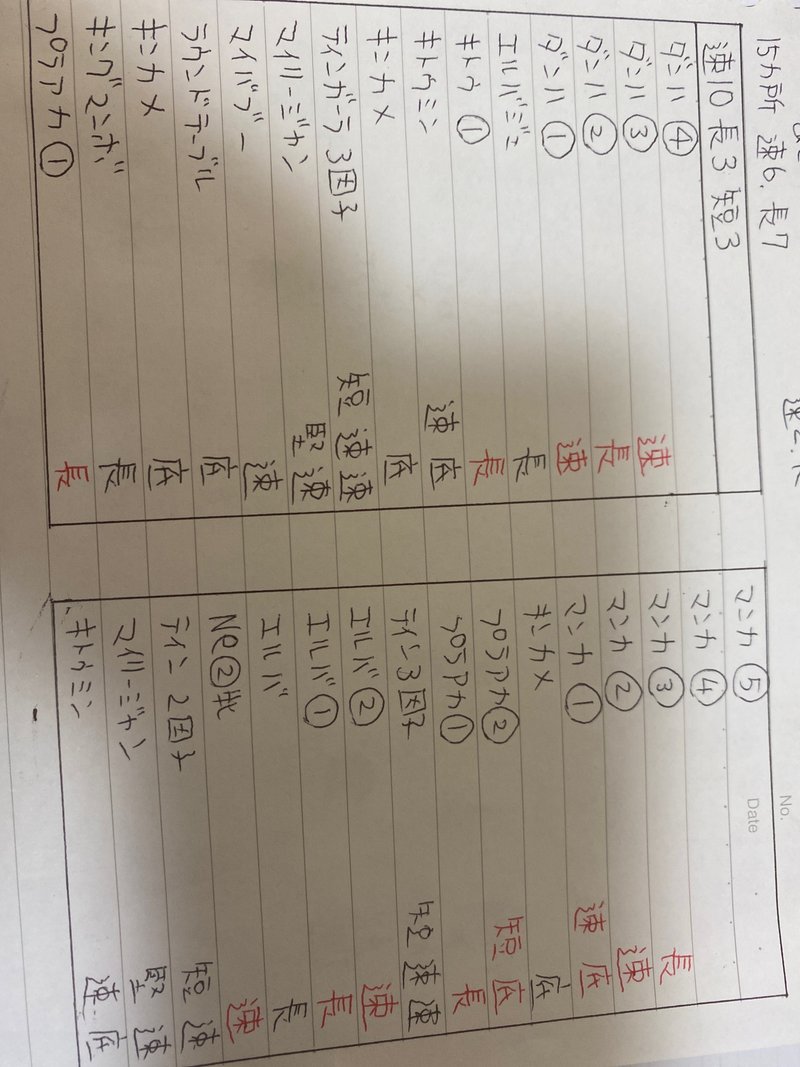 15カ所 速6. 長7
速10 長3 短3
ダンハ ④
ダンハ ③ 速
ダンハ ② 長
ダンハ ① 速
エルバジェ 長
キトウ ① 長
キトウミン 速 底
キンカメ 底
ティンガーラ 3因子 短 速 速
マイリージャン 堅 速
マイバブー 速
ラウンドテーブル 底
キンカメ 底
キングマンボ 長
プラアカ ① 長
No.
Date
マンカ ⑤
マンカ ④
マンカ ③ 長
マンカ ② 速
マンカ ① 速 底
キンカメ 底
プラアカ ② 短 底
プラアカ ① 長
ティン 3因子 短 速 速
エルバ ② 速
エルバ ① 長
エルバ 長
速
ティン 2因子 短 速
マイリージャン 堅 速
キトウミン 速 底